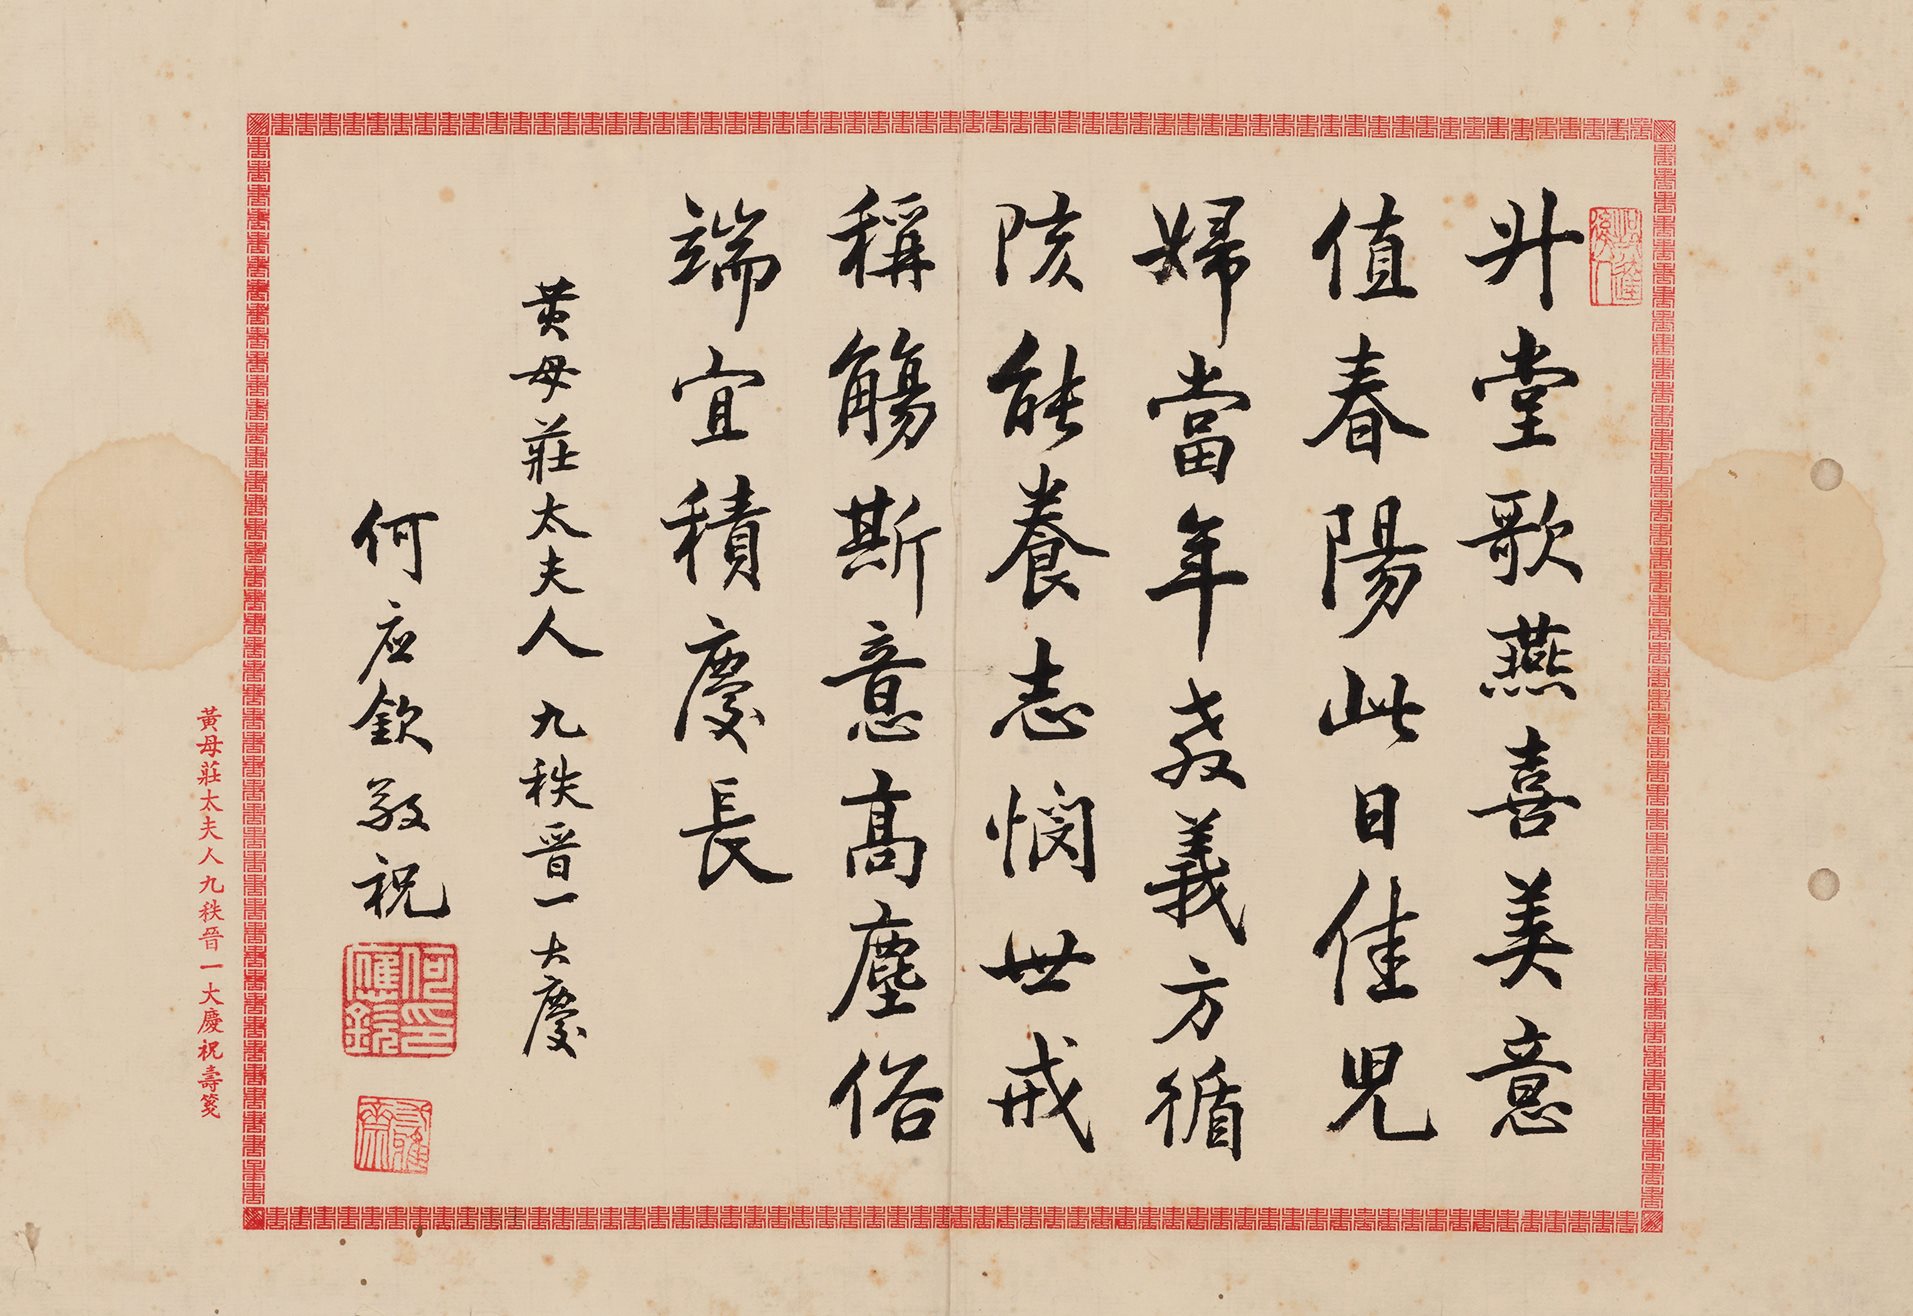 升堂歌燕喜美意
值春陽此日佳兒
婦當年教義方循
陔能養志憫世戒
稱觴斯意高塵俗
端宜積慶長
黃母莊太夫人九秩晉一大慶
何应欽敬祝
何印應欽
黃母莊太夫人九秩晉一大慶祝壽箋